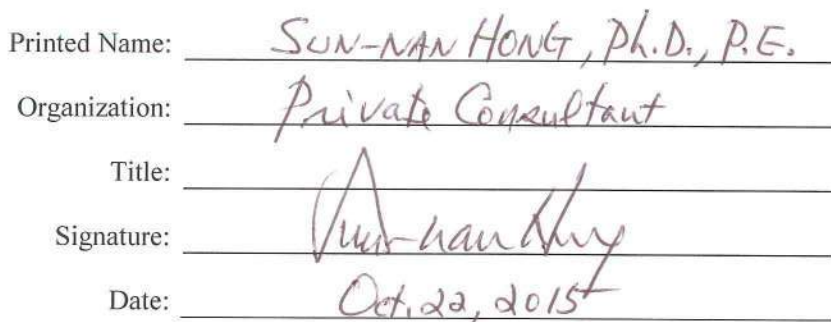 Printed Name: SUN-NAN HONG, Ph.D., P.E.
Organization: Private Consultant
Title:
Signature: Sun-nan Hong
Date: Oct. 22, 2015